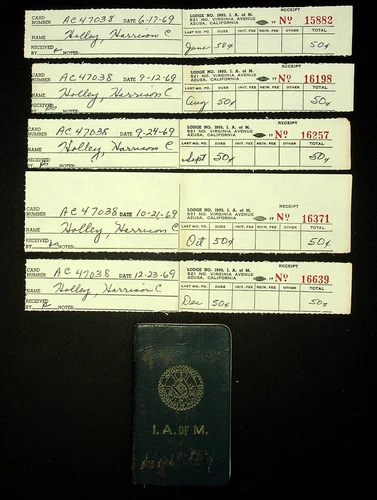 CARD NUMBER AC 47038 DATE 6-17-69
NAME Holley, Harrison C
RECEIVED BY NOTES:
RECEIPT
LODGE NO. 1893, I. A. of M.
521 NO. VIRGINIA AVENUE
AZUSA, CALIFORNIA
Nº 15882
LAST MO. PD. DUES INIT. FEE REIN. FEE OTHER TOTAL
June 50¢ 50¢
CARD NUMBER AC 47038 DATE 9-12-69
NAME Holley, Harrison C
RECEIVED BY NOTES:
RECEIPT
LODGE NO. 1893, I. A. of M.
521 NO. VIRGINIA AVENUE
AZUSA, CALIFORNIA
Nº 16198
LAST MO. PD. DUES INIT. FEE REIN. FEE OTHER TOTAL
Aug 50¢ 50¢
CARD NUMBER AC 47038 DATE 9-24-69
NAME Holley, Harrison C
RECEIVED BY NOTES:
RECEIPT
LODGE NO. 1893, I. A. of M.
521 NO. VIRGINIA AVENUE
AZUSA, CALIFORNIA
Nº 16257
LAST MO. PD. DUES INIT. FEE REIN. FEE OTHER TOTAL
Sept 50¢ 50¢
CARD NUMBER AC 47038 DATE 10-21-69
NAME Holley, Harrison C
RECEIVED BY NOTES:
RECEIPT
LODGE NO. 1893, I. A. of M.
521 NO. VIRGINIA AVENUE
AZUSA, CALIFORNIA
Nº 16371
LAST MO. PD. DUES INIT. FEE REIN. FEE OTHER TOTAL
Oct 50¢ 50¢
CARD NUMBER AC 47038 DATE 12-23-69
NAME Holley, Harrison C
RECEIVED BY NOTES:
RECEIPT
LODGE NO. 1893, I. A. of M.
521 NO. VIRGINIA AVENUE
AZUSA, CALIFORNIA
Nº 16639
LAST MO. PD. DUES INIT. FEE REIN. FEE OTHER TOTAL
Dec 50¢ 50¢
I. A. OF M.